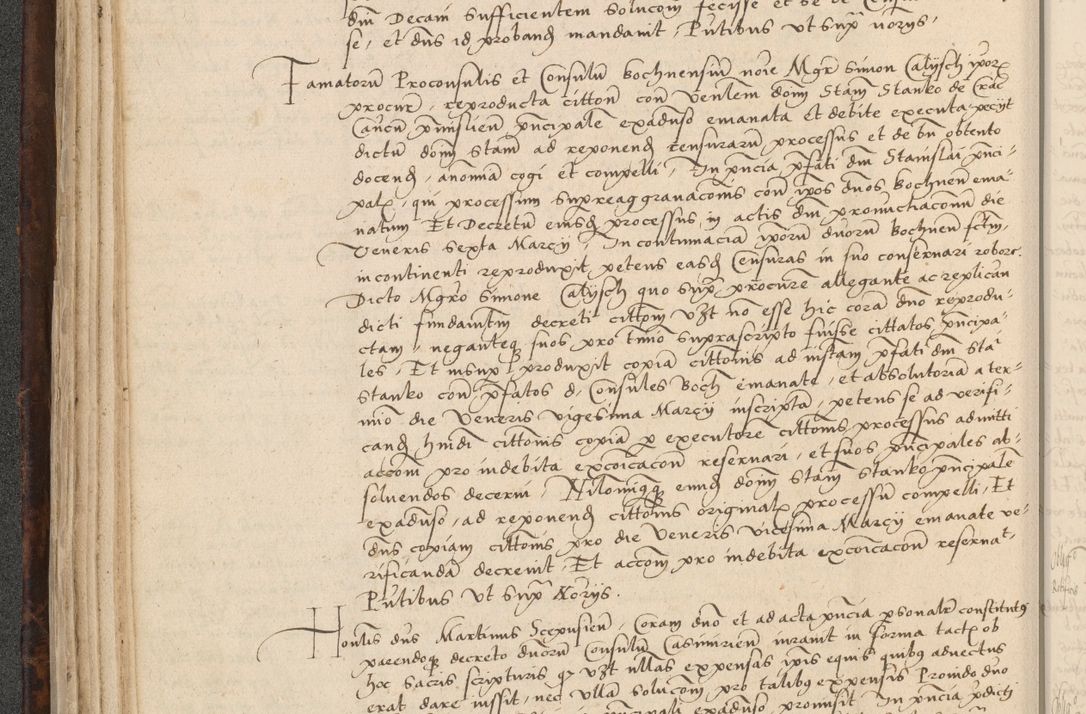 dm̄ Decani sufficientem solucōm fecisse et se de
se, et dn̄s id proband mandavit, Pn̄tibus ut supͣ notͣys,
Famatorū Proconsulis et Consulū bochnensiū noīe Mgr̄ Simon Calysch ip̄orꝫ
procur̄, reproducta cittōn con̄ Venlem̄ dom̄ Stan̄ Stanko de Crac̄
emanata et debite executa
dictū dom̄ Stan̄ ad reponend censurarū processus et de bn̄ obtento
docend, cogi et compelli, In pn̄cia pf̄ati dn̄i Stanislai pn̄ci-
palꝫ, qui processum supreaggravacōnis con̄ ip̄os dn̄os bochnen̄ ema-
natum Et Decretū eiusd processus in actis dn̄ pronūctiaconū die
Veneris sexta Marcÿ, In contumaciā ip̄orū duorū bochnen̄ fctm̄,
incontinenti reproduxit petens easd Censuras in suo conservari robore,
Dicto Mgr̄o Simone Calysch quo supͣ procure allegante ac replican
dicti fundamtm̄ decreti cittōm utʒ nō esse hic corā dno reprodu-
ctam, neganteqꝫ suos pro tm̄io suprascripto fuisse cittatos pn̄cipa-
les, Et insup produxit copiā cittōnis ad instam pf̄ati dn̄i Stāi
Stanko con̄ pf̄atos d, Consules boch emanate, et absolutoriā a ter-
mīo die Veneris vigesima Marcÿ inscriptā, petens se ad verifi-
cand hm̄di cittōnis copiā p executorē cittōnis processus admitti
accōm pro indebita excōicacōn reservari, et suos pn̄cipales ab-
solvendos decerni, Nilominꝰqꝫ eund dom̄ Stan̄ Stanko pn̄cipalē
ex adūso, ad reponend cittōnis originalꝫ processū compelli, Et
dn̄s copiam cittōnis pro die Veneris vicesima Marcÿ emanate ve-
rificandā decrevit, Et accōm pro indebita excōicacōn reservat,
Pn̄tibus ut supͣ Notͣys.
Honlīs dn̄s Martinus Scepusien̄, Coram dn̄o et ad acta pn̄cia psonalr̄ constitutus
parendoqꝫ decreto dn̄orū Consulū Casimirien̄ iuravit in forma tactꝫ ob
hoc sacris scripturis qꝫ utʒ ullas expensas ip̄is equis quibꝫ advectus
erat dare iussit, nec ullā solucōm pro talibꝫ expensis Proindo dn̄o
ex adūso promisit In pn̄cia pdicti